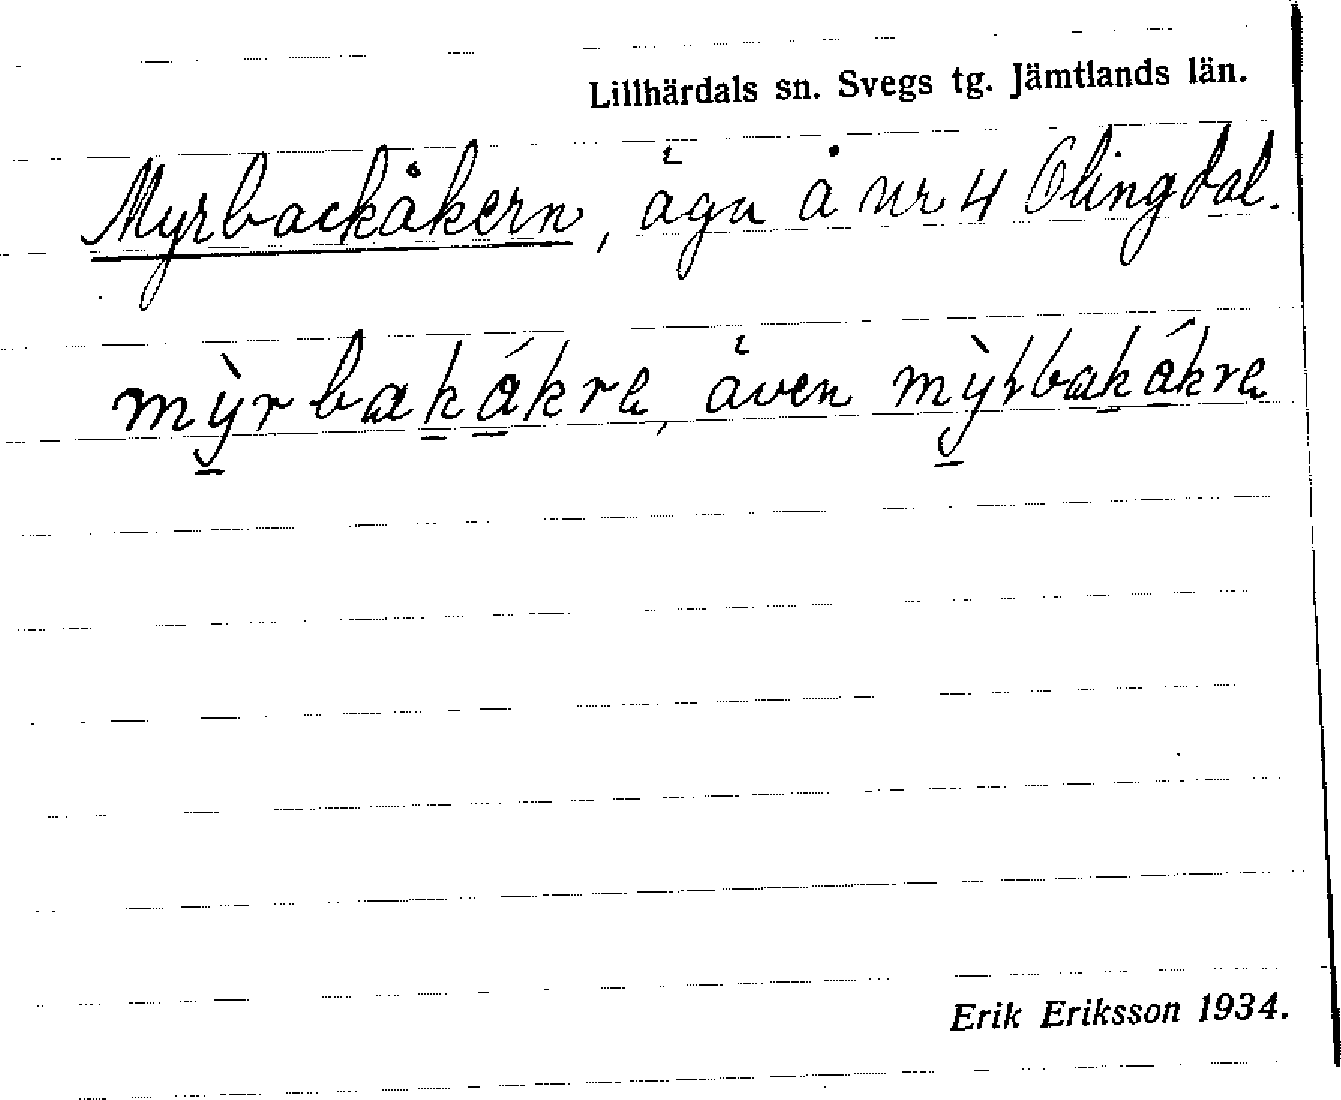 Lillhärdals sn. Svegs tg. Jämtlands län.
Myrbackåkern, äga å Nr 4 Olingdal.
mỳrbakákrα, även mỳrbakákrα
Erik Eriksson 1934.